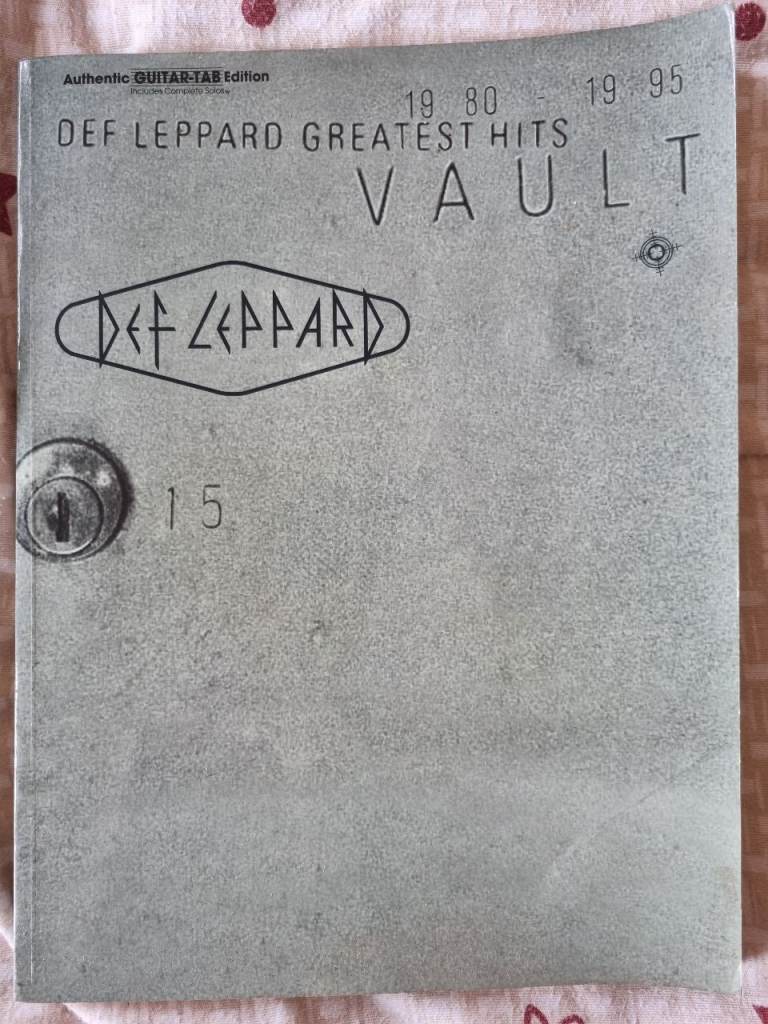 Authentic GUITAR-TAB Edition
Includes Complete Solos
19 80 - 19 95
DEF LEPPARD GREATEST HITS
VAULT
DEF LEPPARD
15